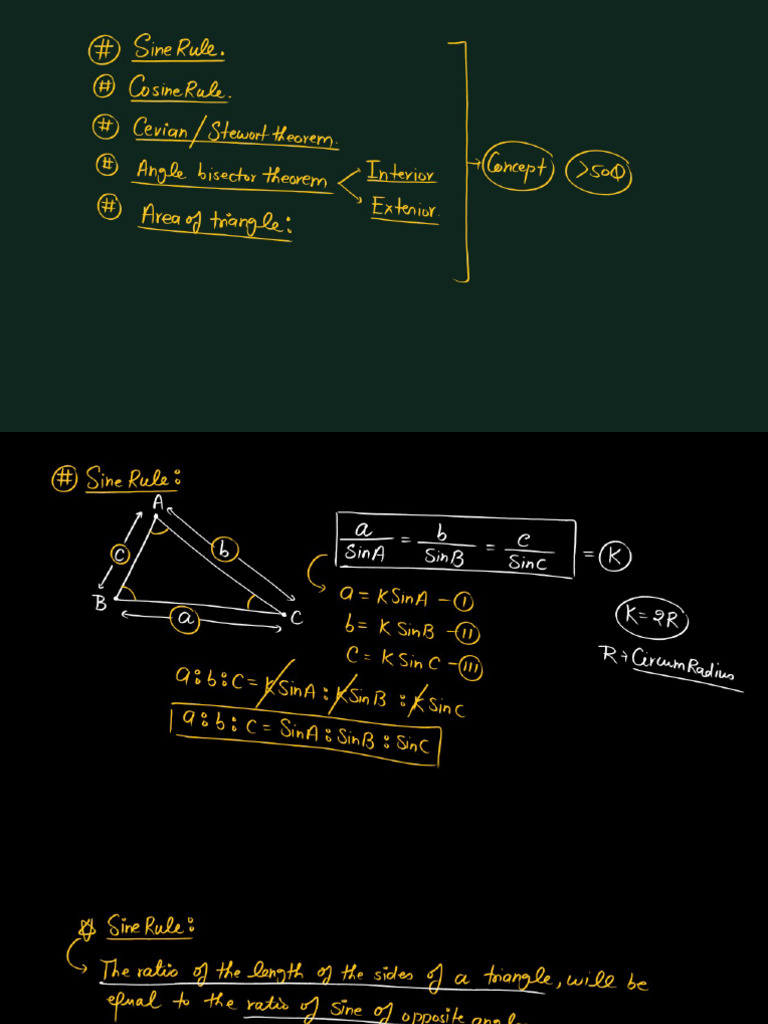 # Sine Rule.
# Cosine Rule.
# Cevian / Stewort theorem.
# Angle bisector theorem
Interior
Exterior
# Area of triangle:
Concept
>50Φ
# Sine Rule:
A
c
b
B
a
C
a/SinA = b/SinB = c/SinC = K
a = K SinA - I
b = K SinB - II
C = K SinC - III
K = 2R
R → CircumRadius
a:b:C = K SinA : K SinB : K SinC
a:b:C = SinA : SinB : SinC
☆ Sine Rule:
The ratio of the length of the sides of a triangle, will be
equal to the ratio of sine of opposite